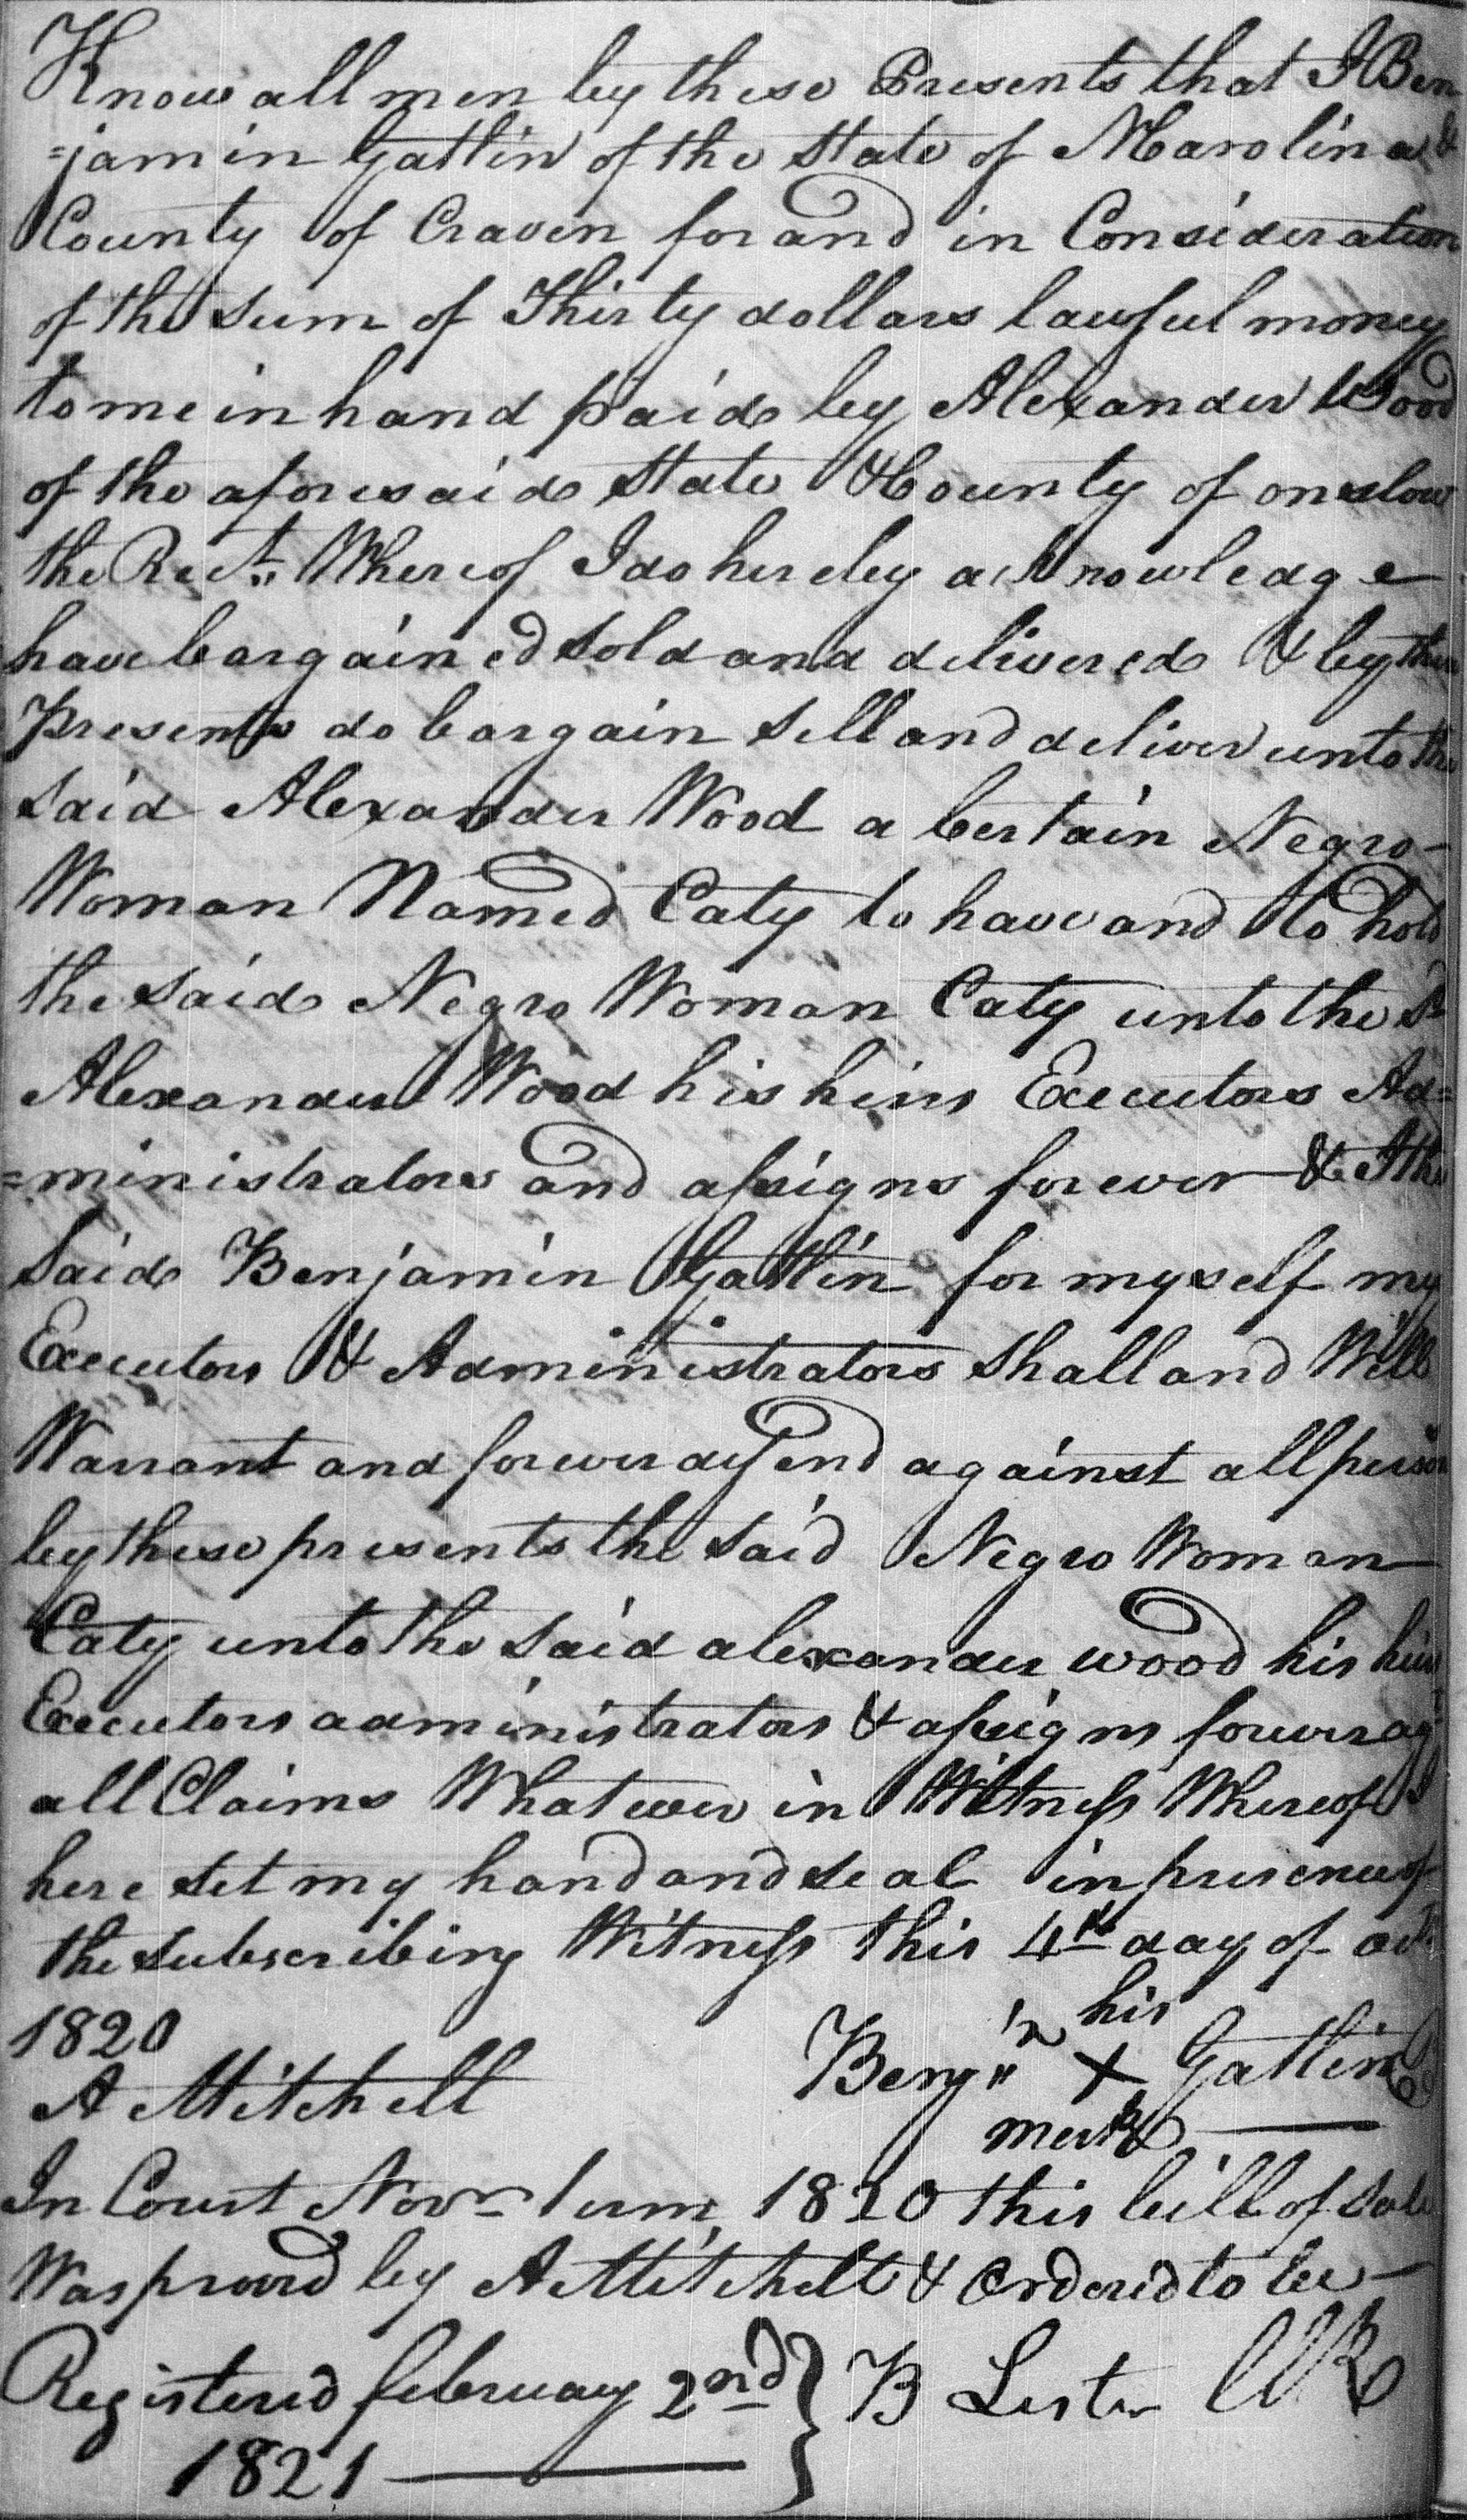 Know all men by these Presents that I Ben
=jamin Gatlin of the State of NCarolina &
County of Craven for and in Consideration
of the sum of Thirty dollars lawful money
to me in hand paid by Alexander Wood
of the aforesaid State & County of onslow
the Rect. Whereof I do hereby acknowledge
have bargained sold and delivered & by these
Presents do bargain sell and deliver unto the
said Alexander Wood a Certain Negro-
Woman Named Caty to have and to hold
the said Negro Woman Caty unto the sd
Alexander Wood his heirs Executors Ad=
=ministrators and assigns forever & I the
said Benjamin Gatlin for myself my
Executors & Administrators shall and Will
Warrant and forever defend against all person
by these presents the said Negro Woman
Caty unto the said alexander wood his heirs
Executors administrators & assigns forever agt
all Claims Whatever in Witness Whereof I
here set my hand and seal in presence of
the subscribing Witness this 4th day of oct
1820
his
A Mitchell Benj"n X Gatlin
mark
In Court Novr Term 1820 this bill of sale
Was proved by A Mitchell & Ordered to be-
Registered february 2nd } B Lester
1821